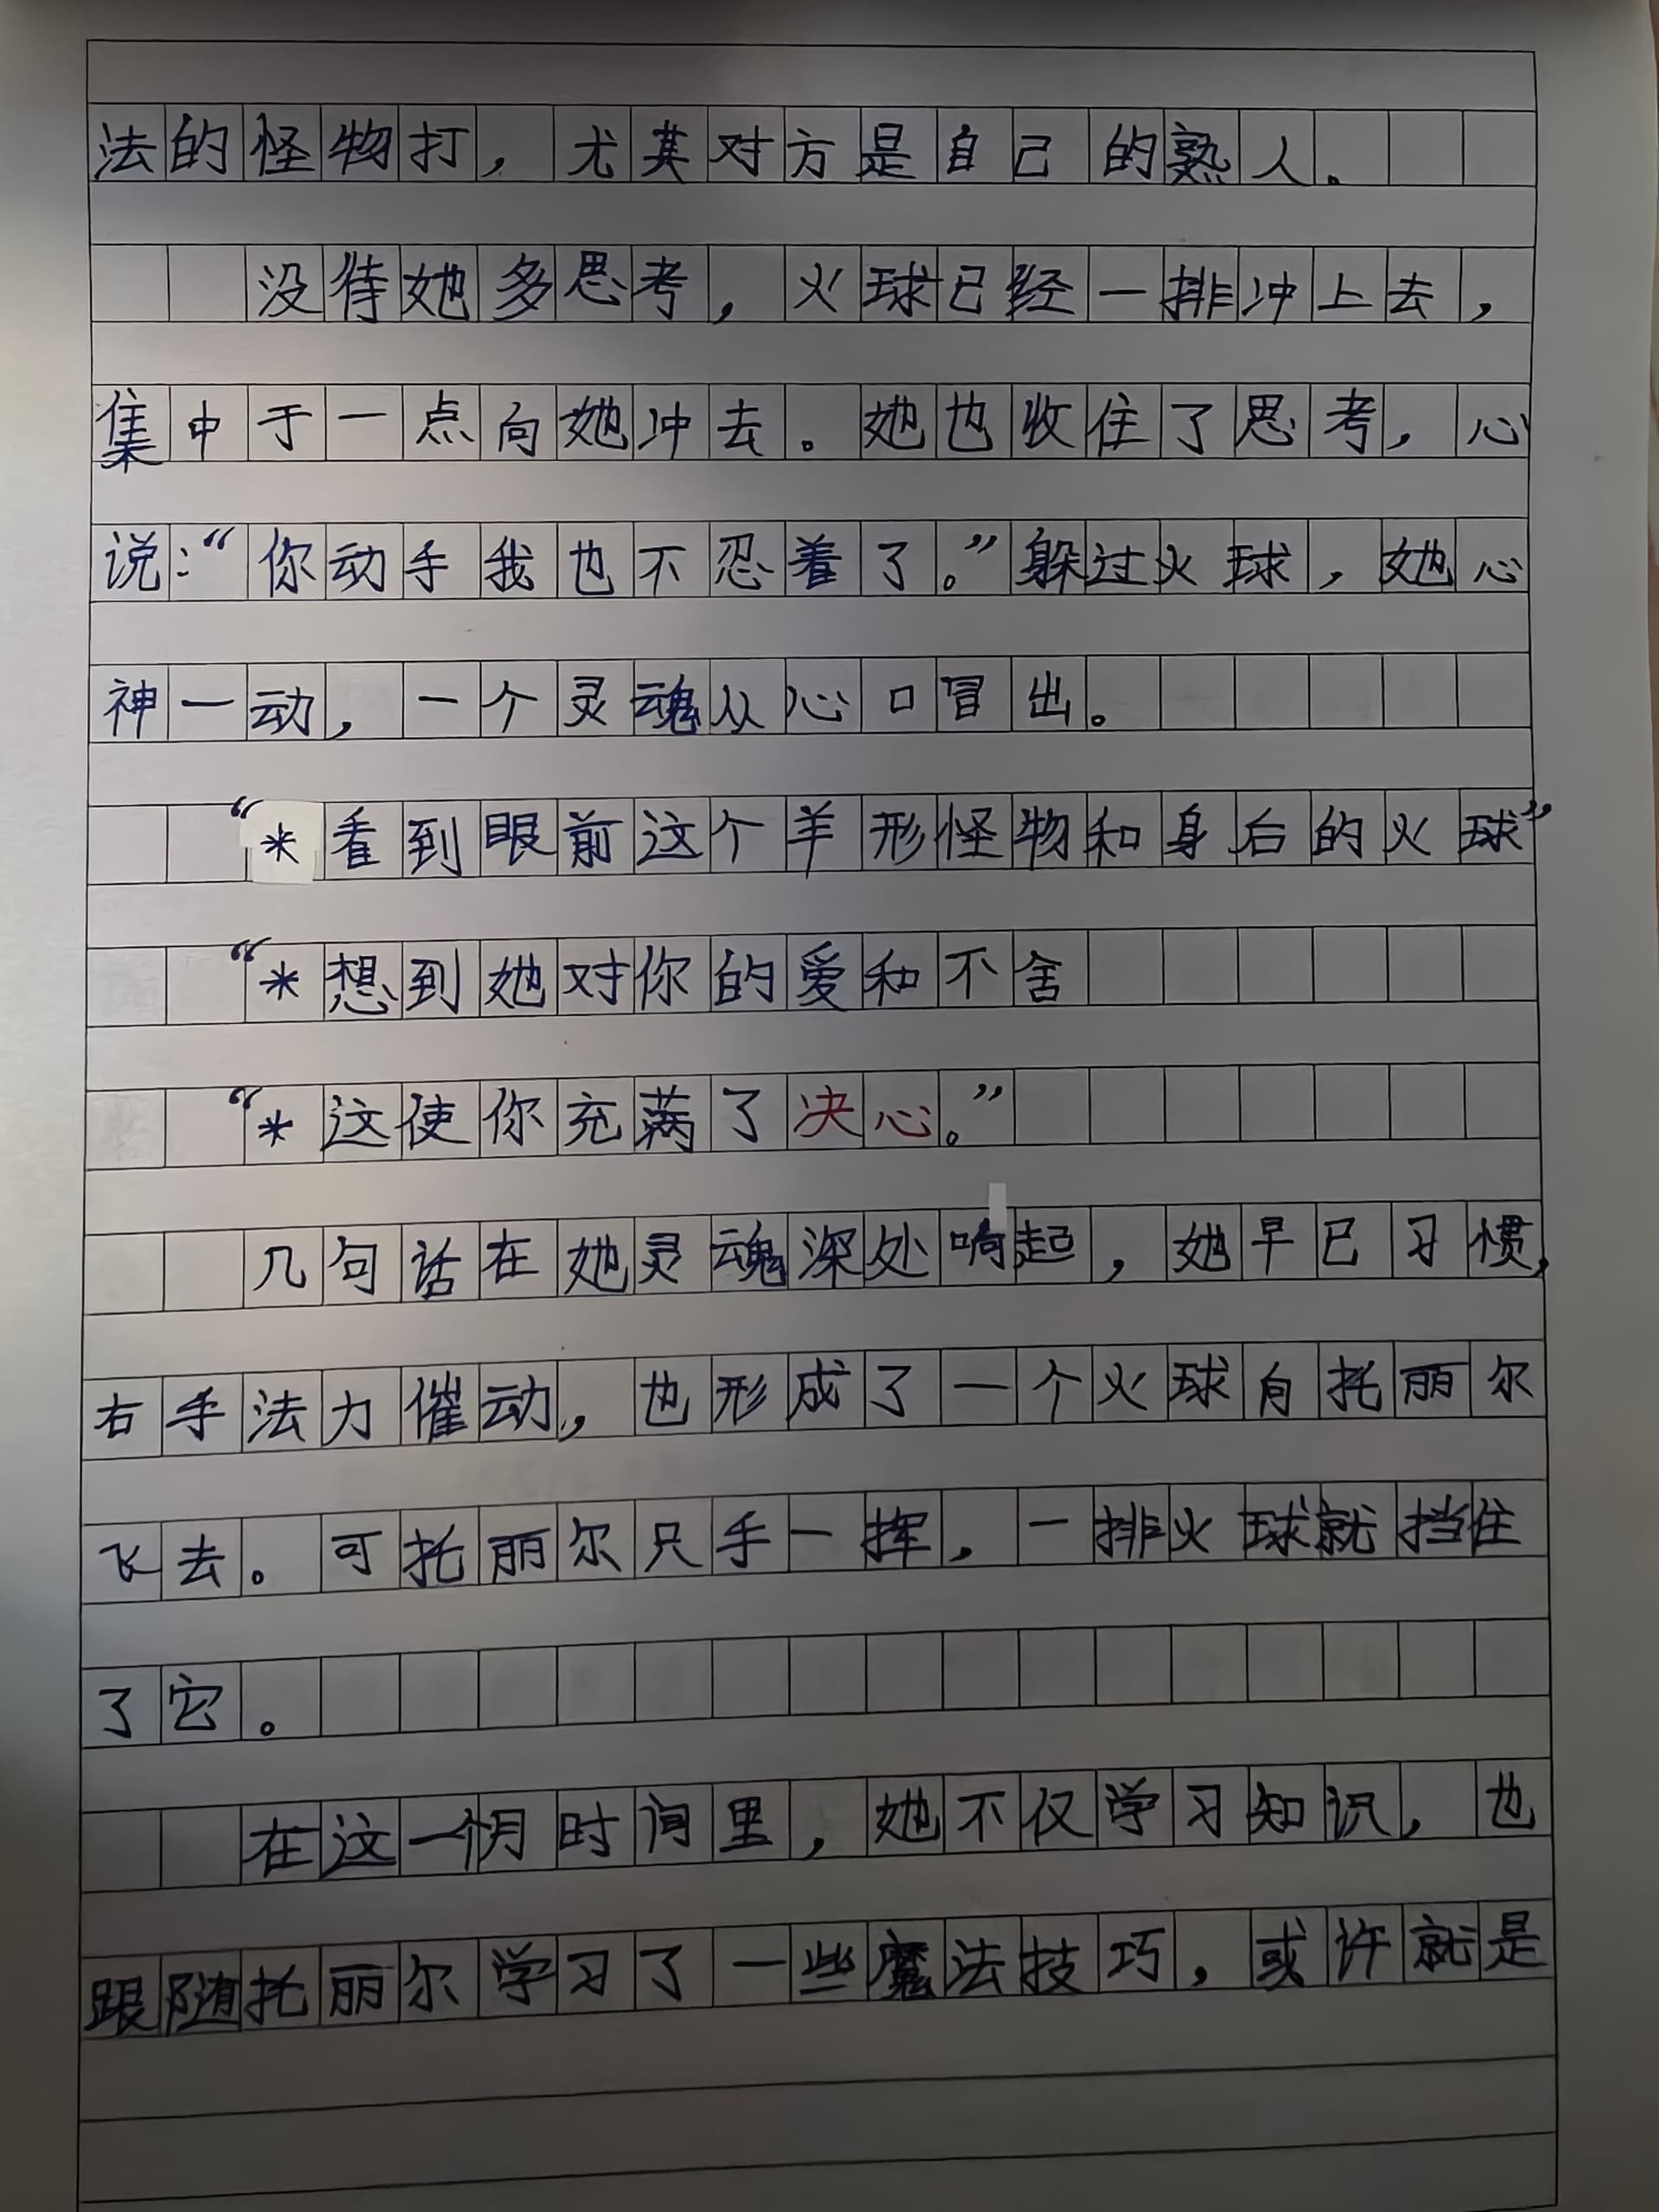 法的怪物打，尤其对方是自己的熟人。
没待她多思考，火球已经一排冲上去，
集中于一点向她冲去。她也收住了思考，心
说：“你动手我也不忍着了。”躲过火球，她心
神一动，一个灵魂从心口冒出。
“*看到眼前这个羊形怪物和身后的火球”
“*想到她对你的爱和不舍
“*这使你充满了决心。”
几句话在她灵魂深处响起，她早已习惯，
右手法力催动，也形成了一个火球向托丽尔
飞去。可托丽尔只手一挥，一排火球就挡住
了它。
在这一个月时间里，她不仅学习知识，也
跟随托丽尔学习了一些魔法技巧，或许就是